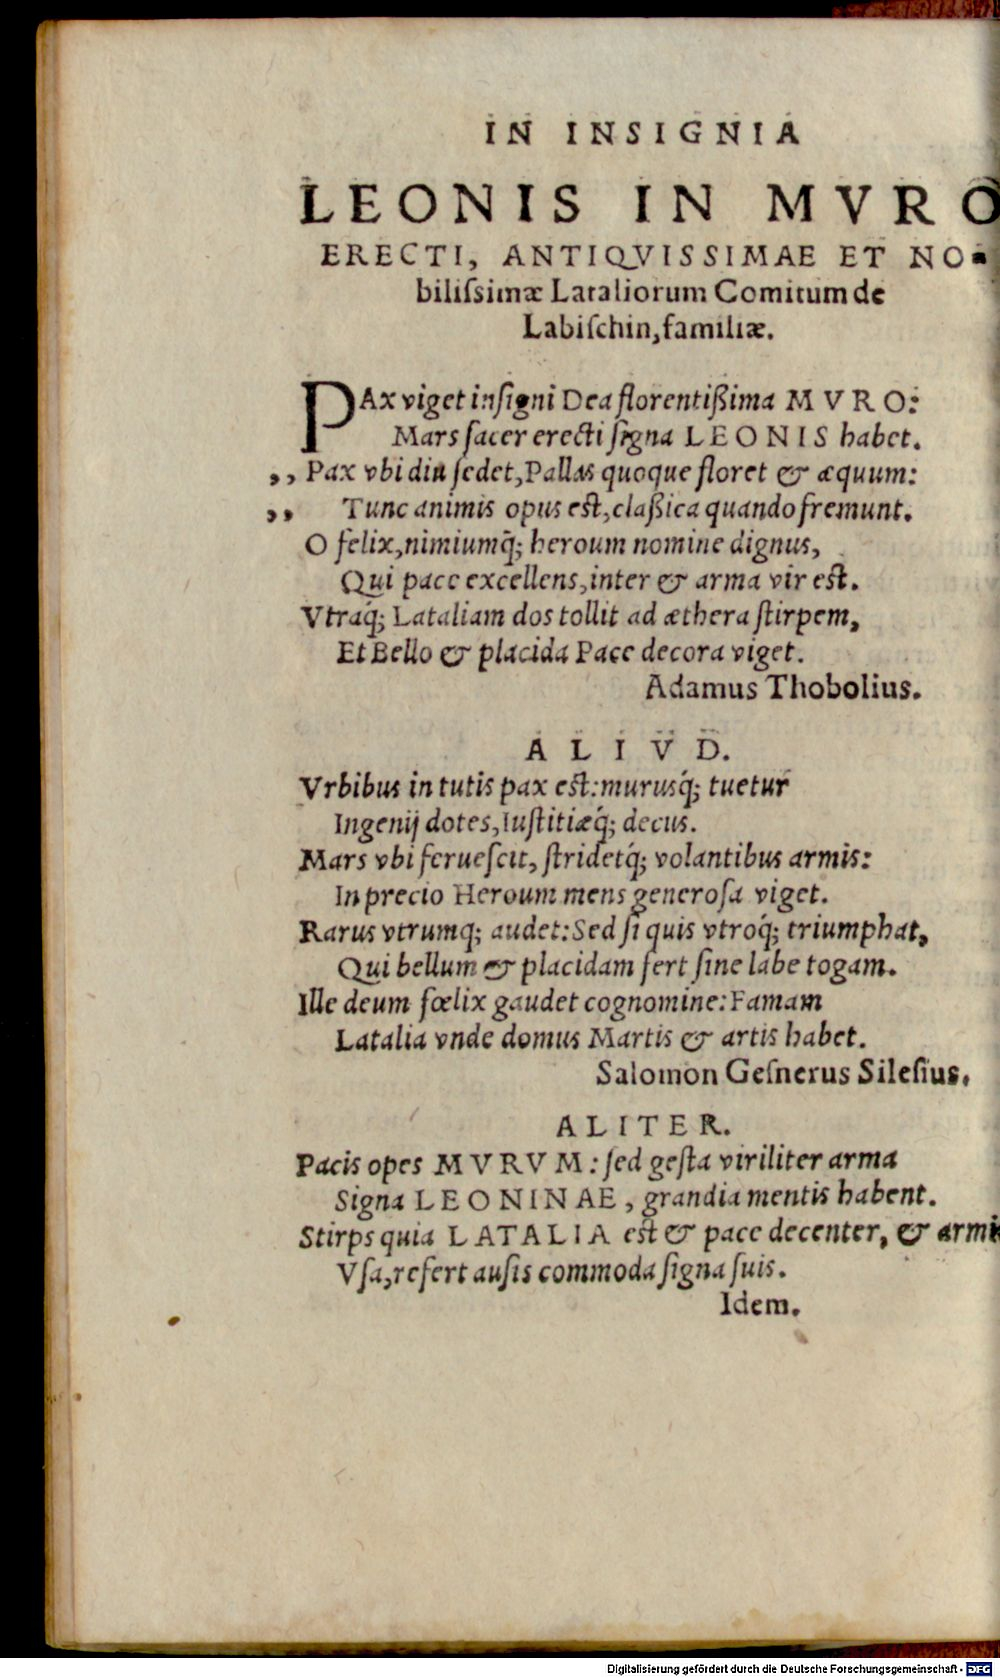 IN INSIGNIA
LEONIS IN MVRO
ERECTI, ANTIQVISSIMAE ET NO-
biliſsimæ Lataliorum Comitum de
Labiſchin, familiæ.
PAx viget inſigni Dea florentißima MVRO:
Mars ſacer erecti ſigna LEONIS habet.
,, Pax vbi diu ſedet, Pallas quoque floret & æquum:
,, Tunc animis opus est, claßica quando fremunt.
O felix, nimiumq́; heroum nomine dignus,
Qui pace excellens, inter & arma vir est.
Vtraq́; Lataliam dos tollit ad æthera ſtirpem,
Et Bello & placida Pace decora viget.
Adamus Thobolius.
ALIVD.
Vrbibus in tutis pax est: murusq́; tuetur
Ingenij dotes, Iuſtitiæq́; decus.
Mars vbi ferueſcit, ſtridetq́; volantibus armis:
In precio Heroum mens generoſa viget.
Rarus vtrumq; audet: Sed ſi quis vtroq́; triumphat,
Qui bellum & placidam fert ſine labe togam.
Ille deum fœlix gaudet cognomine: Famam
Latalia vnde domus Martis & artis habet.
Salomon Geſnerus Sileſius.
ALITER.
Pacis opes MVRVM: ſed geſta viriliter arma
Signa LEONINAE, grandia mentis habent.
Stirps quia LATALIA est & pace decenter, & armis
Vſa, refert auſis commoda ſigna ſuis.
Idem.
Digitalisierung gefördert durch die Deutsche Forschungsgemeinschaft - DFG